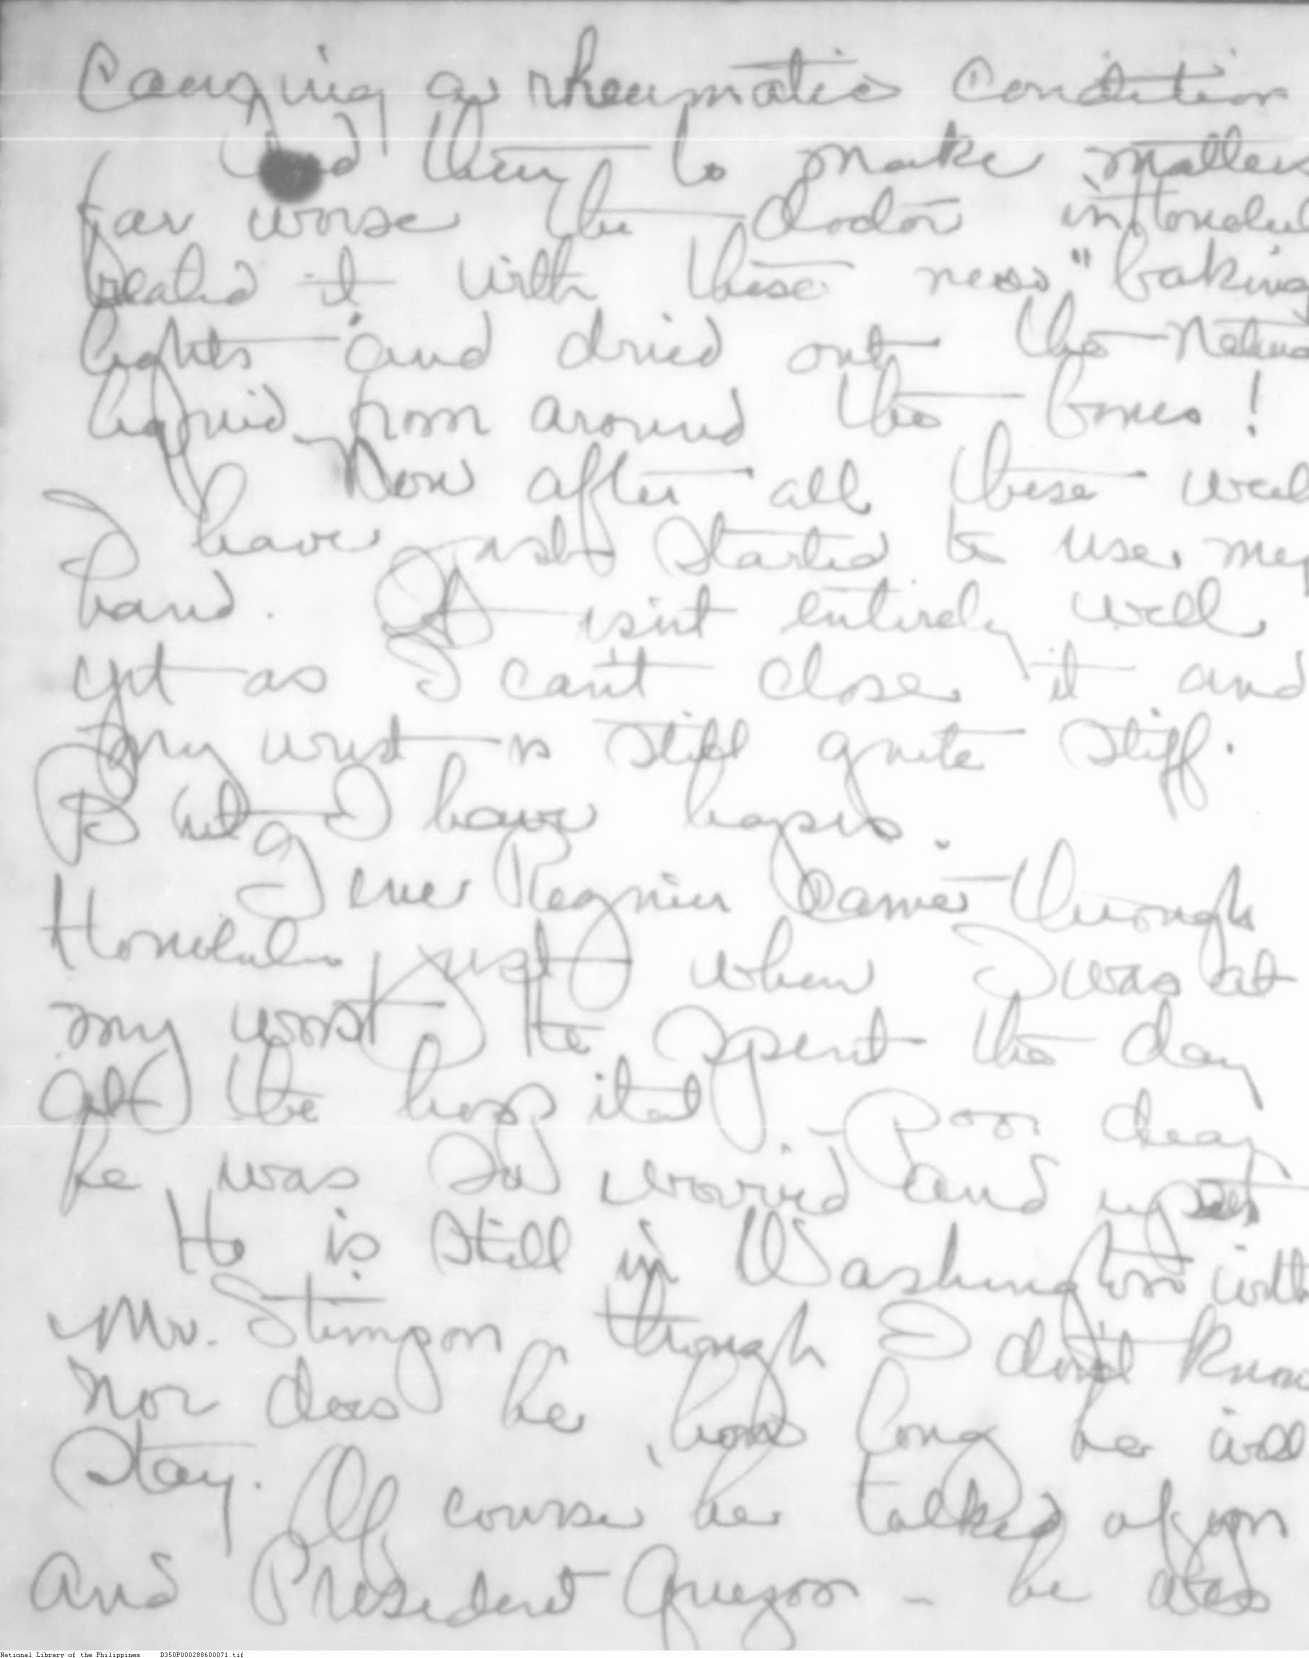 Causing a rheumatic condition
and then to make matters
far worse the doctor in Honolul
treated it with these new "baking
lights" and dried out the natural
liquid from around the bones!
Now after all these week
I have just started to use my
hand. It isn't entirely well
yet as I can't close it and
my wrist is still quite stiff.
But I have hopes.
Gene Regnier came through
Honolulu just when I was at
my worst. He spent the day
at the hospital. Poor dear
he was so worried and upset
He is still in Washington with
Mr. Stimson though I don't know
nor does he how long he will
stay. Of course he talked of you
and President Quezon - he also
National Library of the Philippines D350P000288600071.tif